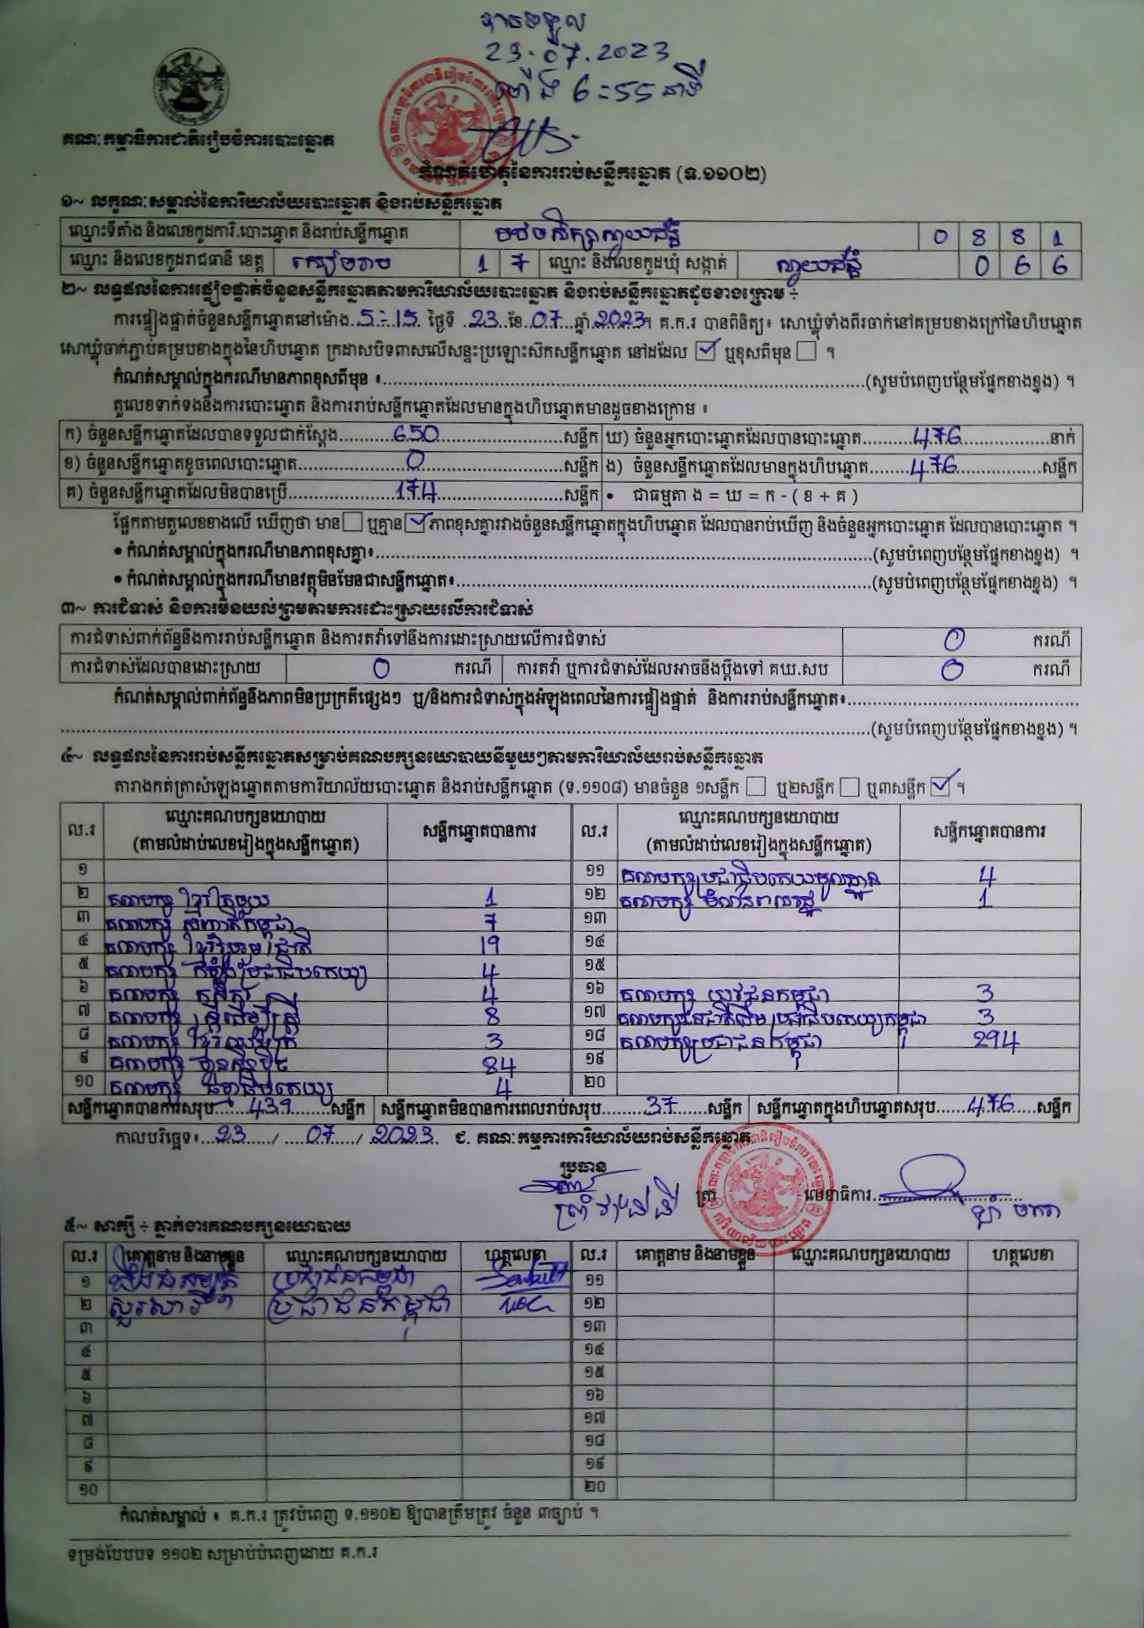 បានទទួល
23.07.2023
ម៉ោង 6:55 នាទី
គណៈកម្មាធិការជាតិរៀបចំការបោះឆ្នោត
កំណត់ហេតុនៃការរាប់សន្លឹកឆ្នោត (ទ.១១០២)
១~ លក្ខណៈសម្គាល់នៃការិយាល័យបោះឆ្នោត និងរាប់សន្លឹកឆ្នោត
ឈ្មោះទីតាំង និងលេខកូដការិ.បោះឆ្នោត និងរាប់សន្លឹកឆ្នោត 0 8 8 1
ឈ្មោះ និងលេខកូដរាជធានី ខេត្ត សៀមរាប 1 7 ឈ្មោះ និងលេខកូដឃុំ សង្កាត់ 0 6 6
២~ លទ្ធផលនៃការផ្ទៀងផ្ទាត់ចំនួនសន្លឹកឆ្នោតតាមការិយាល័យបោះឆ្នោត និងរាប់សន្លឹកឆ្នោតដូចខាងក្រោម ÷
ការផ្ទៀងផ្ទាត់ចំនួនសន្លឹកឆ្នោតនៅម៉ោង 5:15 ថ្ងៃទី 23 ខែ 07 ឆ្នាំ 2023។ គ.ក.រ បានពិនិត្យ៖ សោឃ្លុំទាំងពីរចាក់នៅគម្របខាងក្រៅនៃហិបឆ្នោត
សោឃ្លុំចាក់ភ្ជាប់គម្របខាងក្នុងនៃហិបឆ្នោត ក្រដាសបិទពាសលើសន្ទះប្រឡោះស៊កសន្លឹកឆ្នោត នៅដដែល ☑ ឬខុសពីមុន ☐ ។
កំណត់សម្គាល់ក្នុងករណីមានភាពខុសពីមុន ៖........(សូមបំពេញបន្ថែមផ្នែកខាងខ្នង) ។
តួលេខទាក់ទងនឹងការបោះឆ្នោត និងការរាប់សន្លឹកឆ្នោតដែលមានក្នុងហិបឆ្នោតមានដូចខាងក្រោម ៖
ក) ចំនួនសន្លឹកឆ្នោតដែលបានទទួលជាក់ស្តែង 650 សន្លឹក ឃ) ចំនួនអ្នកបោះឆ្នោតដែលបានបោះឆ្នោត 476 នាក់
ខ) ចំនួនសន្លឹកឆ្នោតខូចពេលបោះឆ្នោត 0 សន្លឹក ង) ចំនួនសន្លឹកឆ្នោតដែលមានក្នុងហិបឆ្នោត 476 សន្លឹក
គ) ចំនួនសន្លឹកឆ្នោតដែលមិនបានប្រើ 174 សន្លឹក • ជាធម្មតា ង = ឃ = ក - ( ខ + គ )
ផ្អែកតាមតួលេខខាងលើ ឃើញថា មាន ☐ ឬគ្មាន ☑ ភាពខុសគ្នារវាងចំនួនសន្លឹកឆ្នោតក្នុងហិបឆ្នោត ដែលបានរាប់ឃើញ និងចំនួនអ្នកបោះឆ្នោត ដែលបានបោះឆ្នោត ។
• កំណត់សម្គាល់ក្នុងករណីមានភាពខុសគ្នា៖........(សូមបំពេញបន្ថែមផ្នែកខាងខ្នង) ។
• កំណត់សម្គាល់ក្នុងករណីមានវត្ថុមិនមែនជាសន្លឹកឆ្នោត៖........(សូមបំពេញបន្ថែមផ្នែកខាងខ្នង) ។
៣~ ការជំទាស់ និងការមិនយល់ព្រមតាមការដោះស្រាយលើការជំទាស់
ការជំទាស់ពាក់ព័ន្ធនឹងការរាប់សន្លឹកឆ្នោត និងការតវ៉ាទៅនឹងការដោះស្រាយលើការជំទាស់ 0 ករណី
ការជំទាស់ដែលបានដោះស្រាយ 0 ករណី ការតវ៉ា ឬការជំទាស់ដែលអាចនឹងប្តឹងទៅ គឃ.សប 0 ករណី
កំណត់សម្គាល់ពាក់ព័ន្ធនឹងភាពមិនប្រក្រតីផ្សេងៗ ឬ/និងការជំទាស់ក្នុងអំឡុងពេលនៃការផ្ទៀងផ្ទាត់ និងការរាប់សន្លឹកឆ្នោត៖........
........(សូមបំពេញបន្ថែមផ្នែកខាងខ្នង) ។
៤~ លទ្ធផលនៃការរាប់សន្លឹកឆ្នោតសម្រាប់គណបក្សនយោបាយនីមួយៗតាមការិយាល័យរាប់សន្លឹកឆ្នោត
តារាងកត់ត្រាសំឡេងឆ្នោតតាមការិយាល័យបោះឆ្នោត និងរាប់សន្លឹកឆ្នោត (ទ.១១០៨) មានចំនួន ១សន្លឹក ☐ ឬ២សន្លឹក ☐ ឬ៣សន្លឹក ☑ ។
ល.រ ឈ្មោះគណបក្សនយោបាយ (តាមលំដាប់លេខរៀងក្នុងសន្លឹកឆ្នោត) សន្លឹកឆ្នោតបានការ ល.រ ឈ្មោះគណបក្សនយោបាយ (តាមលំដាប់លេខរៀងក្នុងសន្លឹកឆ្នោត) សន្លឹកឆ្នោតបានការ
១ ១១ គណបក្សប្រជាធិបតេយ្យមូលដ្ឋាន 4
២ គណបក្ស ខ្មែរតែមួយ 1 ១២ គណបក្ស 1
៣ គណបក្ស កម្ពុជា 7 ១៣
៤ គណបក្ស ខ្មែររួបរួមជាតិ 19 ១៤
៥ គណបក្ស កម្លាំងប្រជាធិបតេយ្យ 4 ១៥
៦ គណបក្ស 4 ១៦ គណបក្ស យុវជនកម្ពុជា 3
៧ គណបក្ស ស្ត្រីដើម្បីស្ត្រី 8 ១៧ គណបក្សជនជាតិដើមប្រជាធិបតេយ្យកម្ពុជា 3
៨ គណបក្ស ខ្មែរ 3 ១៨ គណបក្សប្រជាជនកម្ពុជា 294
៩ គណបក្ស ហ្វ៊ុនស៊ិនប៉ិច 84 ១៩
១០ គណបក្ស ធម្មាធិបតេយ្យ 4 ២០
សន្លឹកឆ្នោតបានការសរុប 439 សន្លឹក សន្លឹកឆ្នោតមិនបានការពេលរាប់សរុប 37 សន្លឹក សន្លឹកឆ្នោតក្នុងហិបឆ្នោតសរុប 476 សន្លឹក
កាលបរិច្ឆេទ៖ 23 / 07 / 2023 ជ. គណៈកម្មការការិយាល័យរាប់សន្លឹកឆ្នោត
ប្រធាន
លេខាធិការ
៥~ សាក្សី ÷ ភ្នាក់ងារគណបក្សនយោបាយ
ល.រ គោត្តនាម និងនាមខ្លួន ឈ្មោះគណបក្សនយោបាយ ហត្ថលេខា ល.រ គោត្តនាម និងនាមខ្លួន ឈ្មោះគណបក្សនយោបាយ ហត្ថលេខា
១ ប្រជាជនកម្ពុជា ១១
២ ប្រជាជនកម្ពុជា ១២
៣ ១៣
៤ ១៤
៥ ១៥
៦ ១៦
៧ ១៧
៨ ១៨
៩ ១៩
១០ ២០
កំណត់សម្គាល់ ៖ គ.ក.រ ត្រូវបំពេញ ទ.១១០២ ឱ្យបានត្រឹមត្រូវ ចំនួន ៣ច្បាប់ ។
ទម្រង់បែបបទ ១១០២ សម្រាប់បំពេញដោយ គ.ក.រ